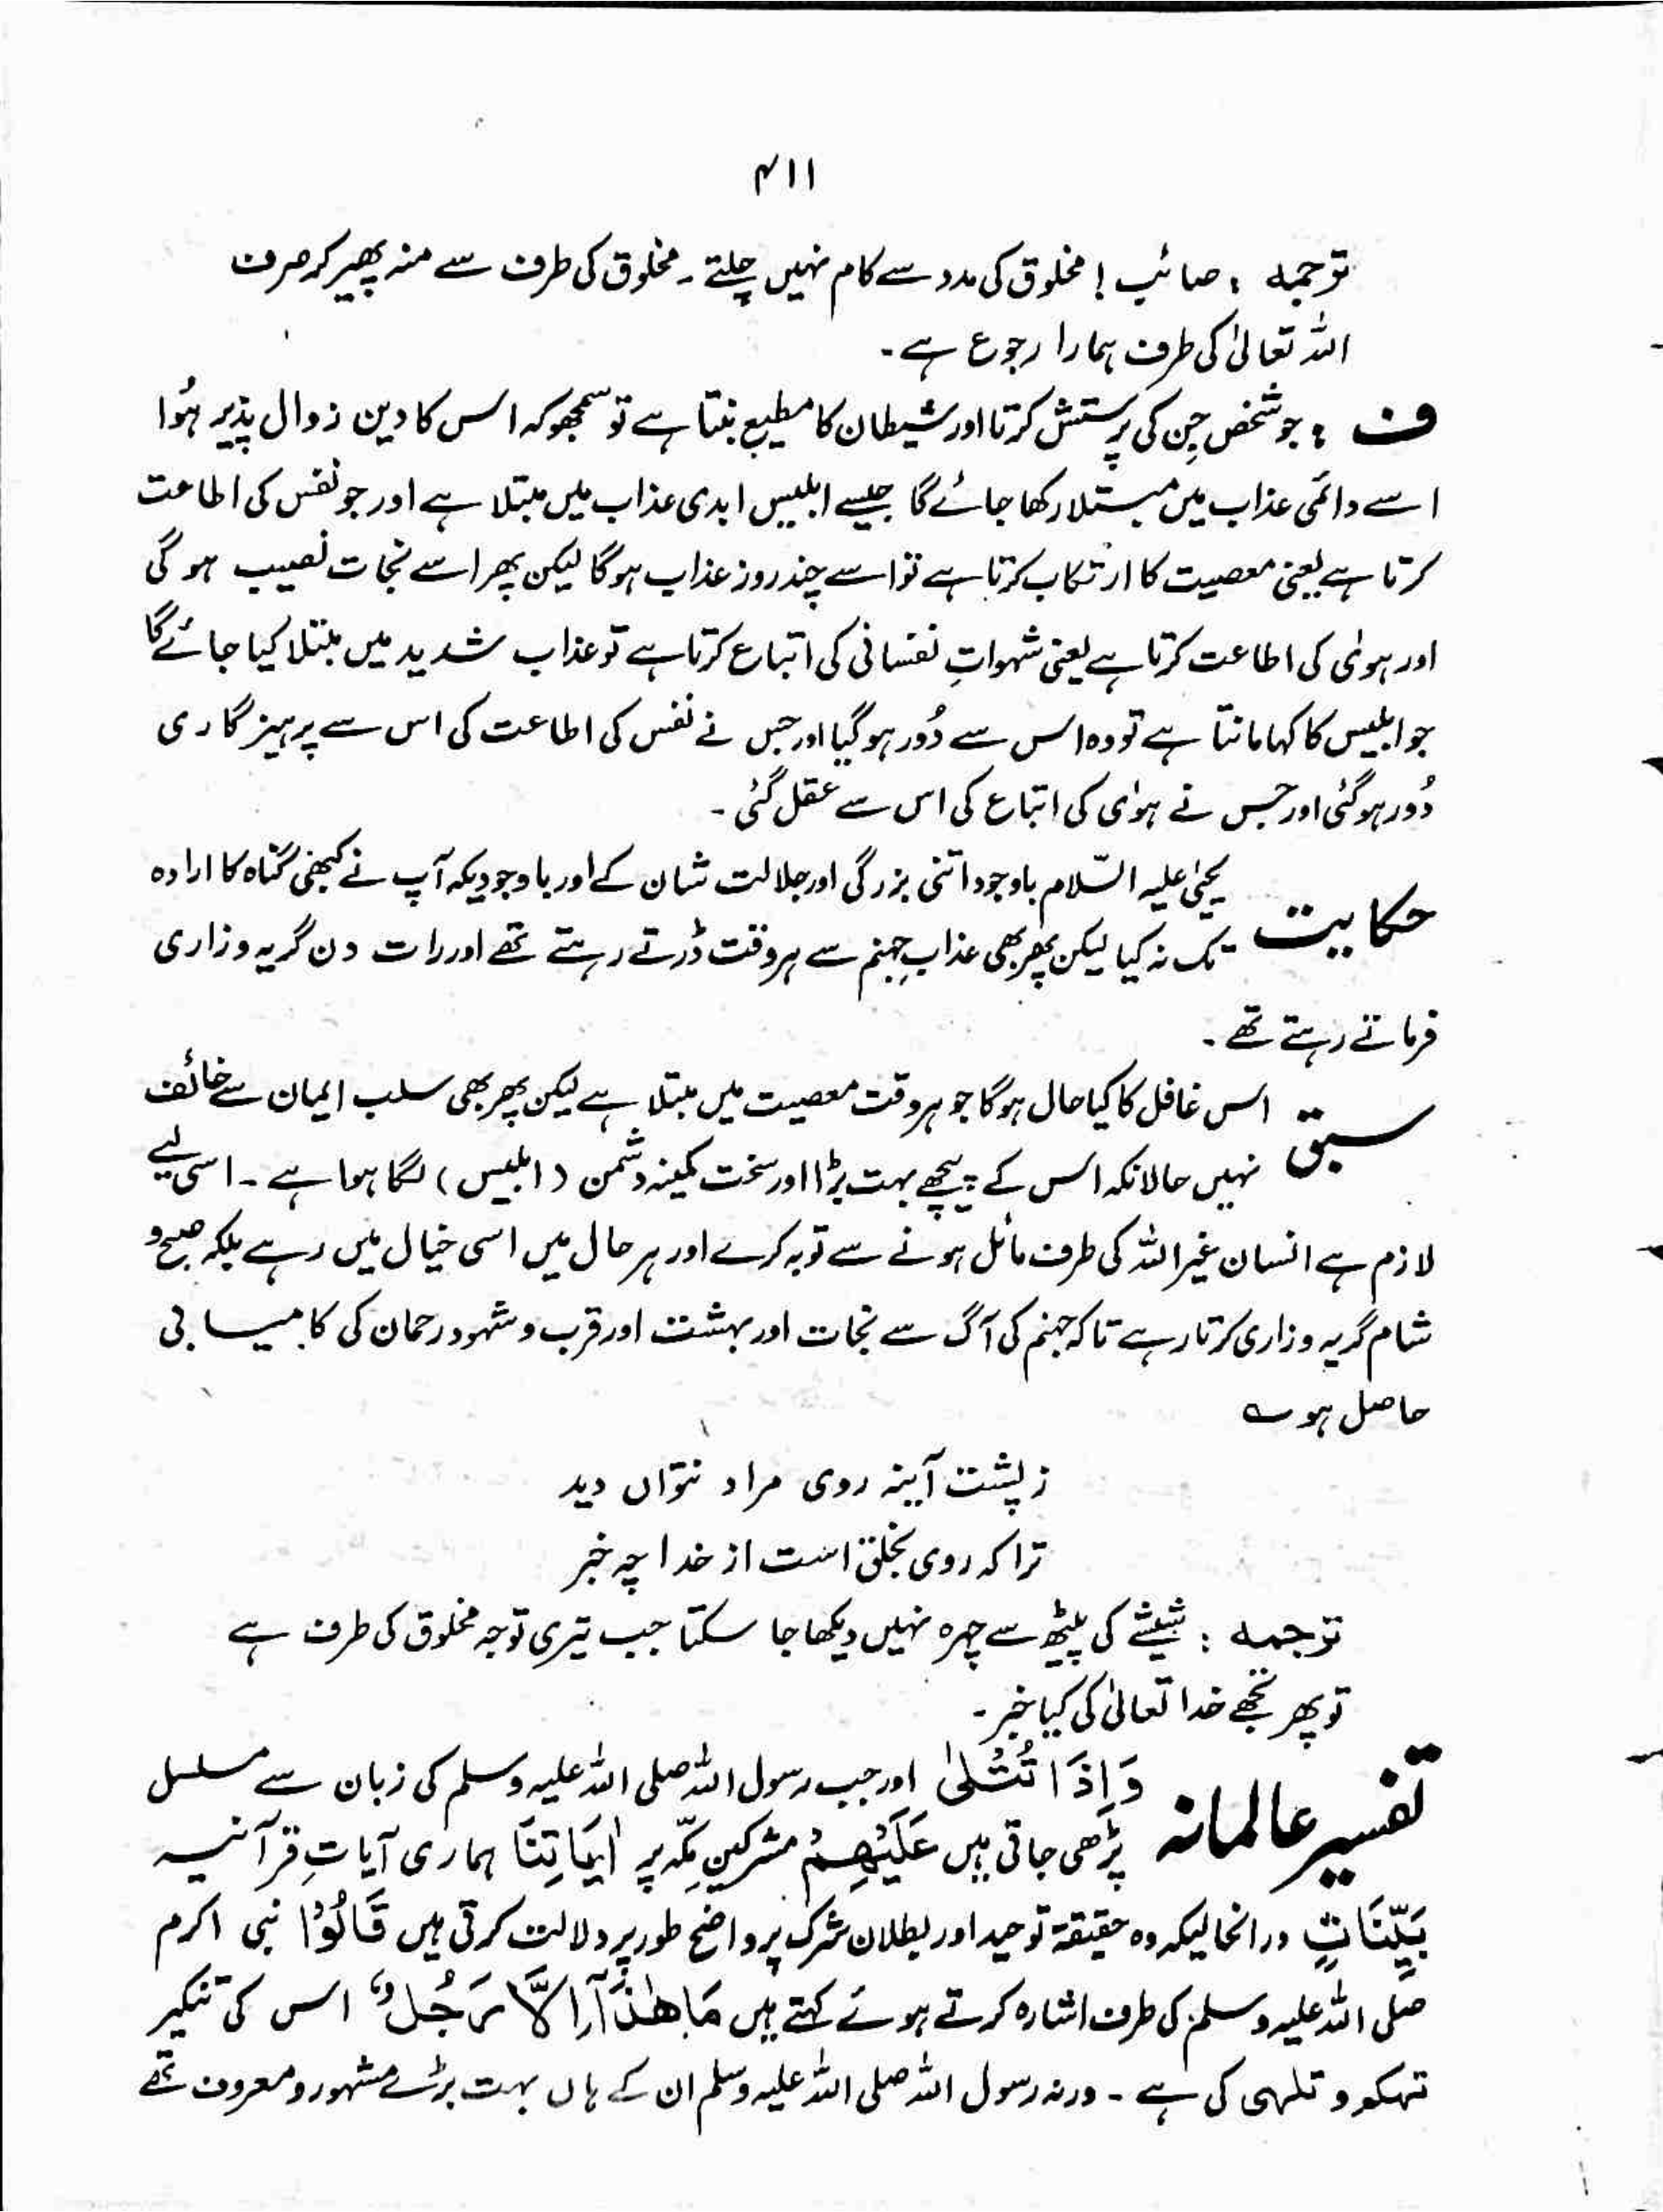 ۴۱۱
ترجمہ : صائب ! مخلوق کی مدد سے کام نہیں چلتے ۔ مخلوق کی طرف سے منہ پھیر کر صرف
اللہ تعالیٰ کی طرف ہمارا رجوع ہے ۔
ف : جو شخص جِن کی پرستش کرتا اور شیطان کا مطیع بنتا ہے تو سمجھو کہ اس کا دین زوال پذیر ہُوا
اسے دائمی عذاب میں مبتلا رکھا جائے گا جیسے ابلیس ابدی عذاب میں مبتلا ہے اور جو نفس کی اطاعت
کرتا ہے یعنی معصیت کا ارتکاب کرتا ہے تو اسے چند روز عذاب ہوگا لیکن پھر اسے نجات نصیب ہو گی
اور ہوٰی کی اطاعت کرتا ہے یعنی شہواتِ نفسانی کی اتباع کرتا ہے تو عذاب شدید میں مبتلا کیا جائے گا
جو ابلیس کا کہا مانتا ہے تو وہ اس سے دُور ہو گیا اور جس نے نفس کی اطاعت کی اس سے پرہیزگاری
دُور ہو گئی اور جس نے ہوٰی کی اتباع کی اس سے عقل گئی ۔
حکایت یحییٰ علیہ السّلام باوجود اتنی بزرگی اور جلالت شان کے اور باوجودیکہ آپ نے کبھی گناہ کا ارادہ
تک نہ کیا لیکن پھر بھی عذابِ جہنم سے ہر وقت ڈرتے رہتے تھے اور رات دن گریہ و زاری
فرماتے رہتے تھے ۔
سبق اس غافل کا کیا حال ہوگا جو ہر وقت معصیت میں مبتلا ہے لیکن پھر بھی سلب ایمان سے خائف
نہیں حالانکہ اس کے پیچھے بہت بڑا اور سخت کمینہ دشمن ( ابلیس ) لگا ہوا ہے ۔ اسی لیے
لازم ہے انسان غیر اللہ کی طرف مائل ہونے سے توبہ کرے اور ہر حال میں اسی خیال میں رہے بلکہ صبح و
شام گریہ و زاری کرتا رہے تاکہ جہنم کی آگ سے نجات اور بہشت اور قرب و شہود رحمان کی کامیابی
حاصل ہو ؎
ز پشت آینہ روی مراد نتواں دید
ترا کہ روی بخلق است از خدا چہ خبر
ترجمہ : شیشے کی پیٹھ سے چہرہ نہیں دیکھا جا سکتا جب تیری توجہ مخلوق کی طرف ہے
تو پھر تجھے خدا تعالیٰ کی کیا خبر ۔
تفسیر عالمانہ وَاِذَا تُتْلیٰ اور جب رسول اللہ صلی اللہ علیہ وسلم کی زبان سے مسلسل
پڑھی جاتی ہیں عَلَیْھِمْ مشرکینِ مکّہ پر اٰیٰاتِنَا ہماری آیاتِ قرآنیہ
بَیِّنَاتٍ درانحالیکہ وہ حقیقۃ توحید اور بطلان شرک پر واضح طور پر دلالت کرتی ہیں قَالُوْا نبی اکرم
صلی اللہ علیہ وسلم کی طرف اشارہ کرتے ہوئے کہتے ہیں مَا ھٰذَآ اِلَّا رَجُلٌ اس کی تنکیر
تہکو و تلہی کی ہے ۔ ورنہ رسول اللہ صلی اللہ علیہ وسلم ان کے ہاں بہت بڑے مشہور و معروف تھے